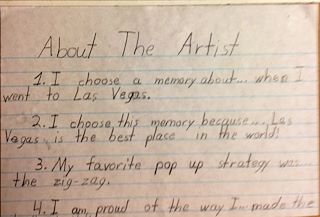 About The Artist
1. I choose a memory about... when I
went to Las Vegas.
2. I choose this memory because... Las
Vegas is the best place in the world!
3. My favorite pop up strategy was...
the zig-zag.
4. I am proud of the way I... made the